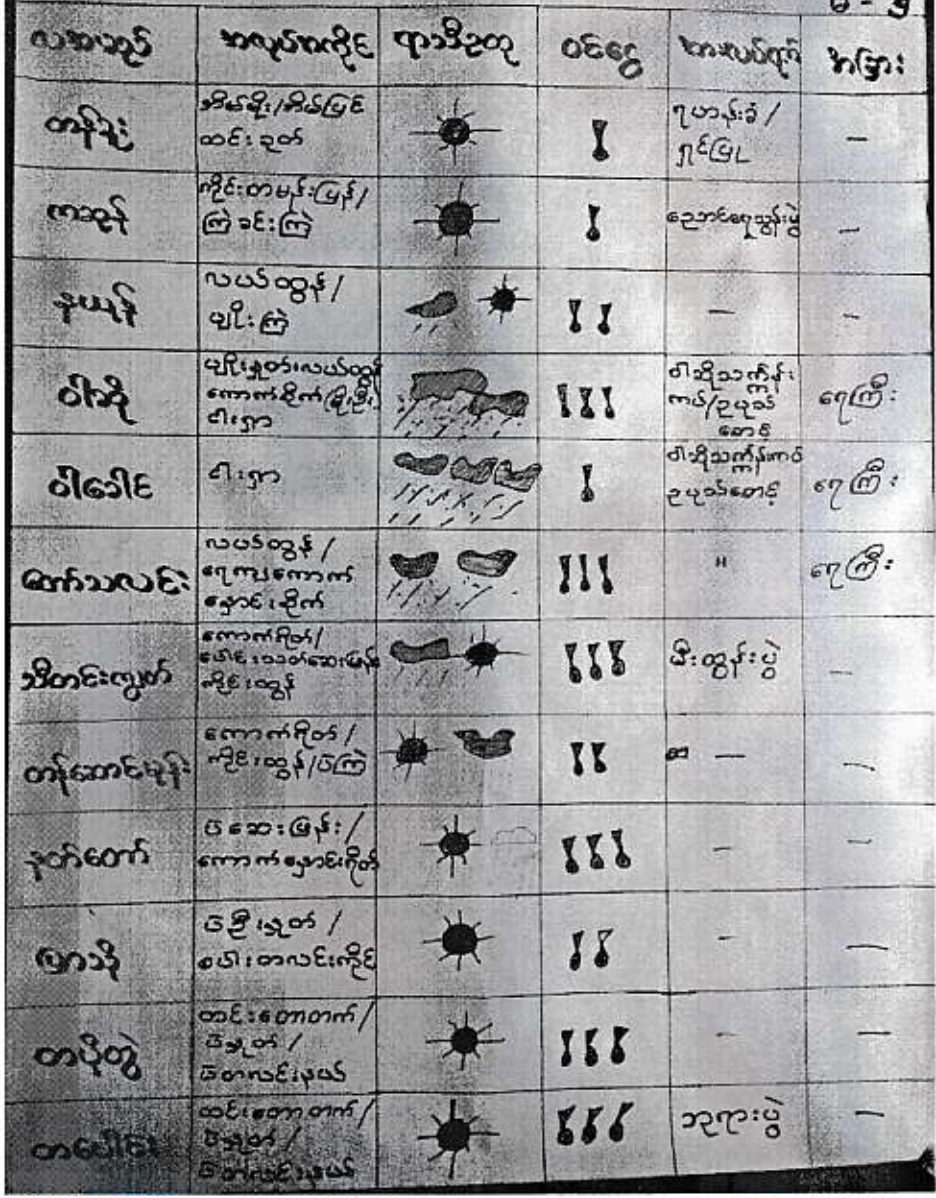 ၆-၅
လအမည် အလုပ်အကိုင် ရာသီဥတု ဝင်ငွေ အားလပ်ရက် အခြား
တန်ခူး
အိမ်မိုး/အိမ်ပြင်
ထင်းခုတ်
ရဟန်းခံ/
ရှင်ပြု
—
ကဆုန်
ကိုင်းတမန်းပြန်/
ကြဲခင်းကြဲ
ညောင်ရေသွန်းပွဲ
—
နယုန်
လယ်ထွန်/
ပျိုးကြဲ
—
—
ဝါဆို
ပျိုးနှုတ်းလယ်ထွန်
ကောက်စိုက်(မိုးဦး)
ငါးရှာ
ဝါဆိုသင်္ကန်း
ကပ်/ဥပုသ်
စောင့်
ရေကြီး
ဝါခေါင်
ငါးရှာ
ဝါဆိုသင်္ကန်းကပ်
ဥပုသ်စောင့်
ရေကြီး
တော်သလင်း
လယ်ထွန်/
ရေကျကောက်
နှောင်းစိုက်
"
ရေကြီး
သီတင်းကျွတ်
ကောက်ရိတ်/
ပေါင်းသတ်ဆေးဖြန်း
ကိုင်းထွန်
မီးထွန်းပွဲ
—
တန်ဆောင်မုန်း
ကောက်ရိတ်/
ကိုင်းထွန်/ပဲကြဲ
—
—
နတ်တော်
ပဲဆေးဖြန်း/
ကောက်နှောင်းရိတ်
—
—
ပြာသို
ပဲဦးနှုတ်/
စပါးတလင်းကိုင်
—
—
တပို့တွဲ
ထင်းတောတက်/
ပဲနှုတ်/
ပဲတလင်းနယ်
—
—
တပေါင်း
ထင်းတောတက်/
ပဲနှုတ်/
ပဲတလင်းနယ်
ဘုရားပွဲ
—